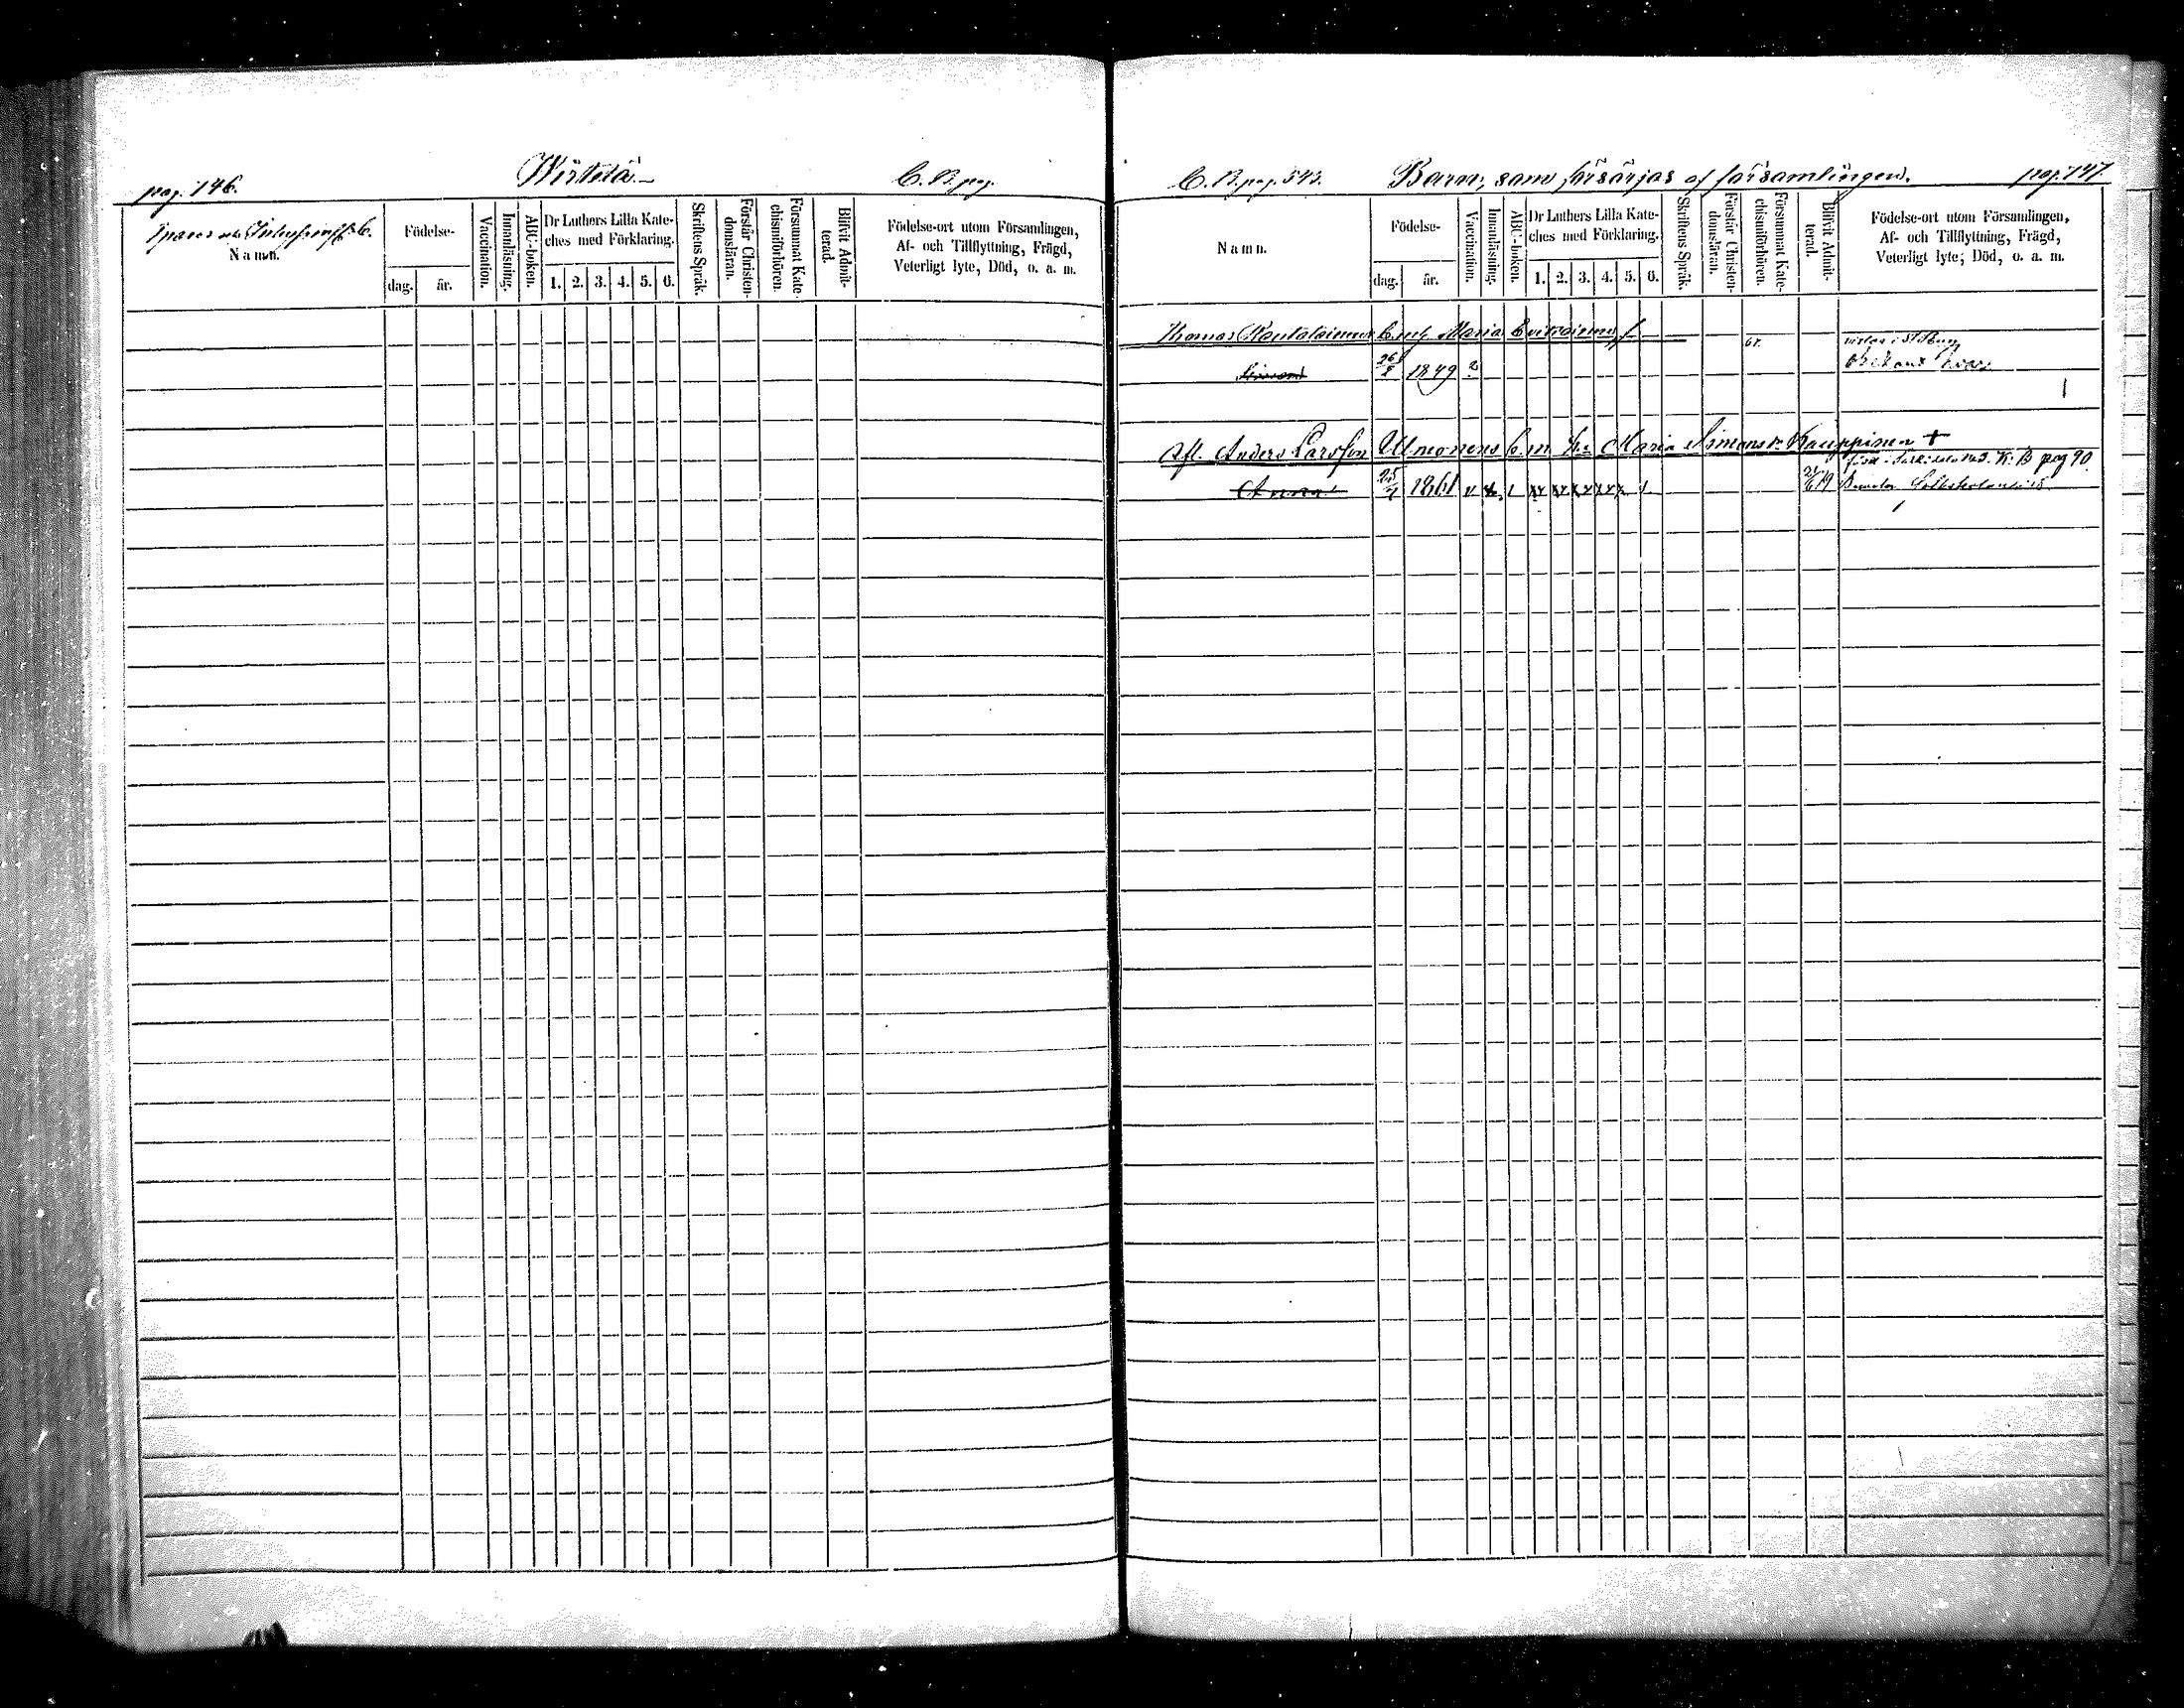 pag. 146.
Wirtelä
C. B. pag.
Namn.
Födelse-
dag.
år.
Vaccination.
Innanläsning.
ABC-boken.
Dr Luthers Lilla Kate-
ches med Förklaring.
1. 2. 3. 4. 5. 6.
Skriftens Språk.
Förstår Christen-
domsläran.
Försummat Kate-
chismiförhören.
Blifvit Admit-
terad.
Födelse-ort utom Församlingen,
Af- och Tillflyttning, Frägd,
Veterligt lyte, Död, o. a. m.
C. B. pag. 543.
Barn, som försörjas af församlingen.
pag. 147.
Namn.
Födelse-
dag.
år.
Vaccination.
Innanläsning.
ABC-boken.
Dr Luthers Lilla Kate-
ches med Förklaring.
1. 2. 3. 4. 5. 6.
Skriftens Språk.
Förstår Christen-
domsläran.
Försummat Kate-
chismiförhören.
Blifvit Admit-
terad.
Födelse-ort utom Församlingen,
Af- och Tillflyttning, Frägd,
Veterligt lyte, Död, o. a. m.
Thomas Maria
vistas i St Pburg
Simon 26 1849 obekant hvar
Afl. Anders Larsson Ulmonens Maria Simonsdr Kauppinen +
K. B pag 90
Anna 25 1861